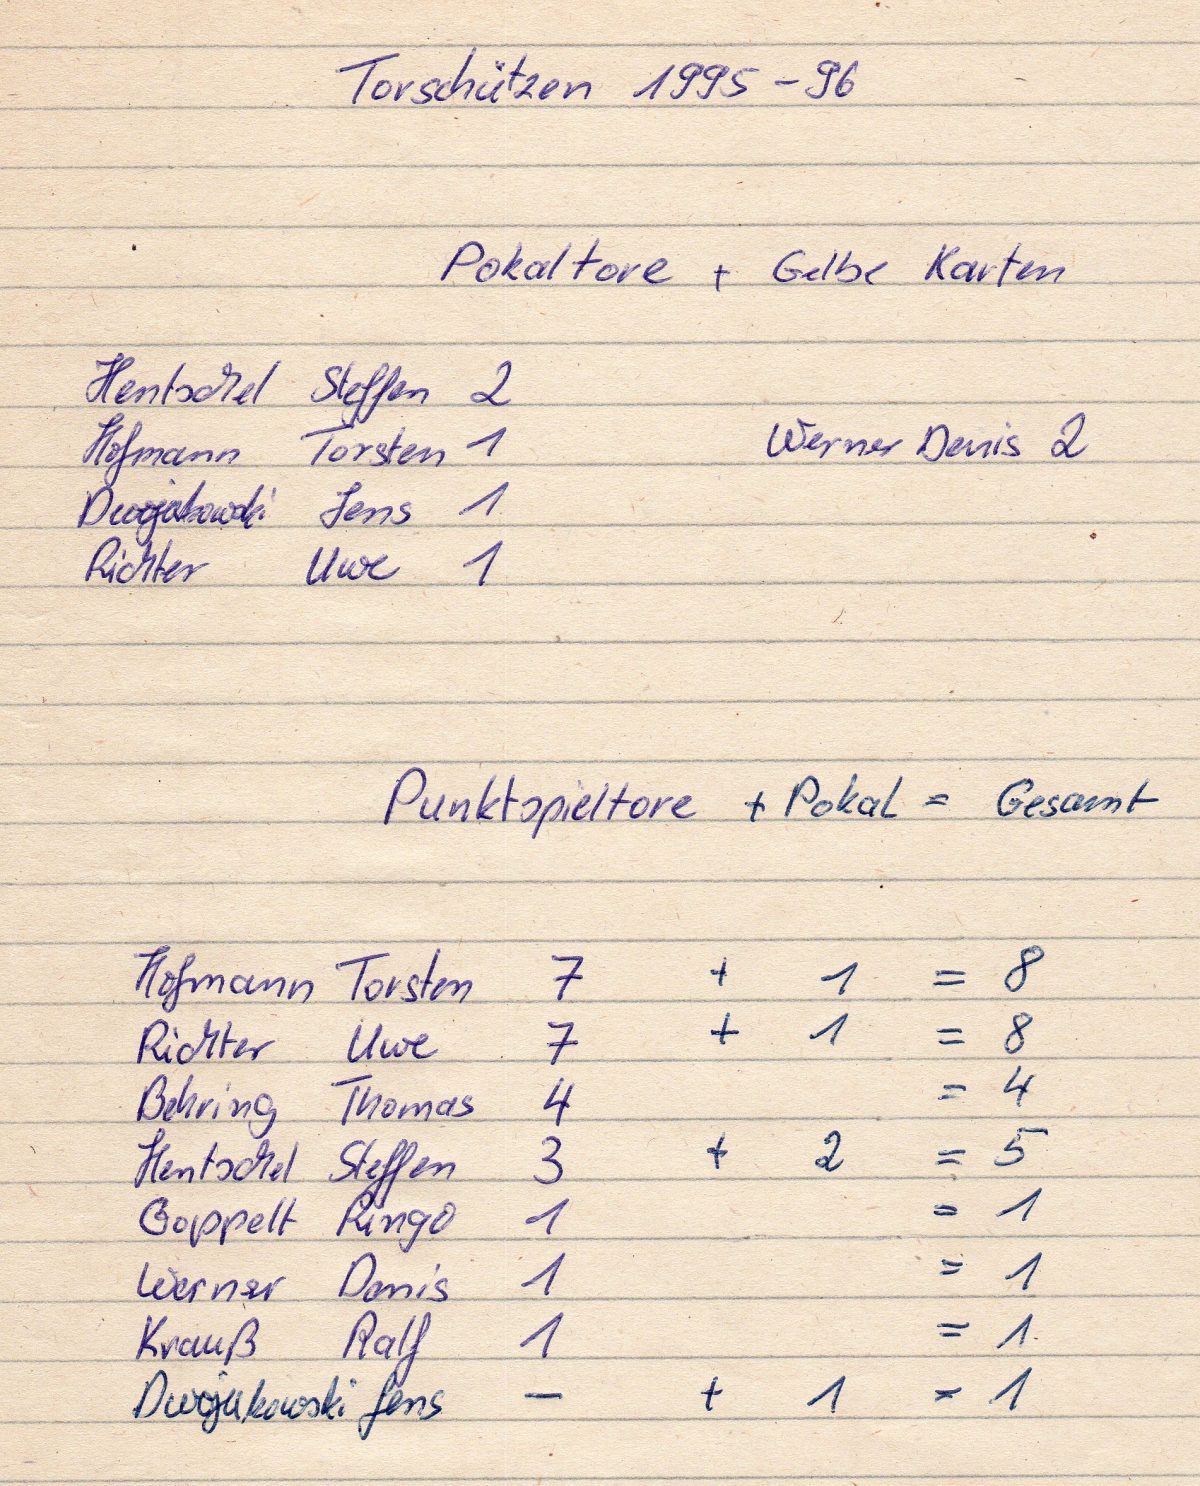 Torschützen 1995-96
Pokaltore + Gelbe Karten
Hentschel Steffen 2
Hofmann Torsten 1 Werner Denis 2
Dwojakowski Jens 1
Richter Uwe 1
Punktspieltore + Pokal = Gesamt
Hofmann Torsten 7 + 1 = 8
Richter Uwe 7 + 1 = 8
Behring Thomas 4 = 4
Hentschel Steffen 3 + 2 = 5
Goppelt Ringo 1 = 1
Werner Denis 1 = 1
Krauß Ralf 1 = 1
Dwojakowski Jens - + 1 = 1